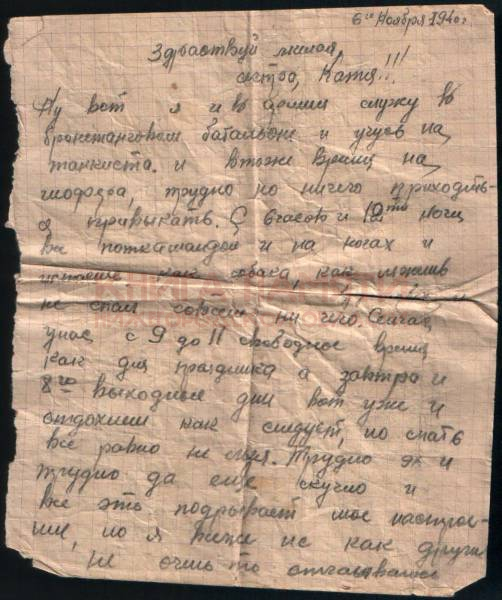 6го Ноября 1940 г
Здравствуй милая
сестра, Катя!!!
Ну вот я и в армии служу в
бронетанковом батальоне и учусь на
танкиста. и в тоже время на
шофера, трудно но ничего приходить-
ся привыкать. С 6 часов и 12ти ночи
все под командой и на ногах и
как собака, как
не спал совсем ни чего. Сейчас
у нас с 9 до 11 свободное время
как для праздника а завтра и
8го выходные дни вот уже и
отдохнем как следует, но спать
всё равно не Трудно и
трудно да еще скучно и
все это подрывает мое настрое-
ние, но я вижу не как другие
не очень то